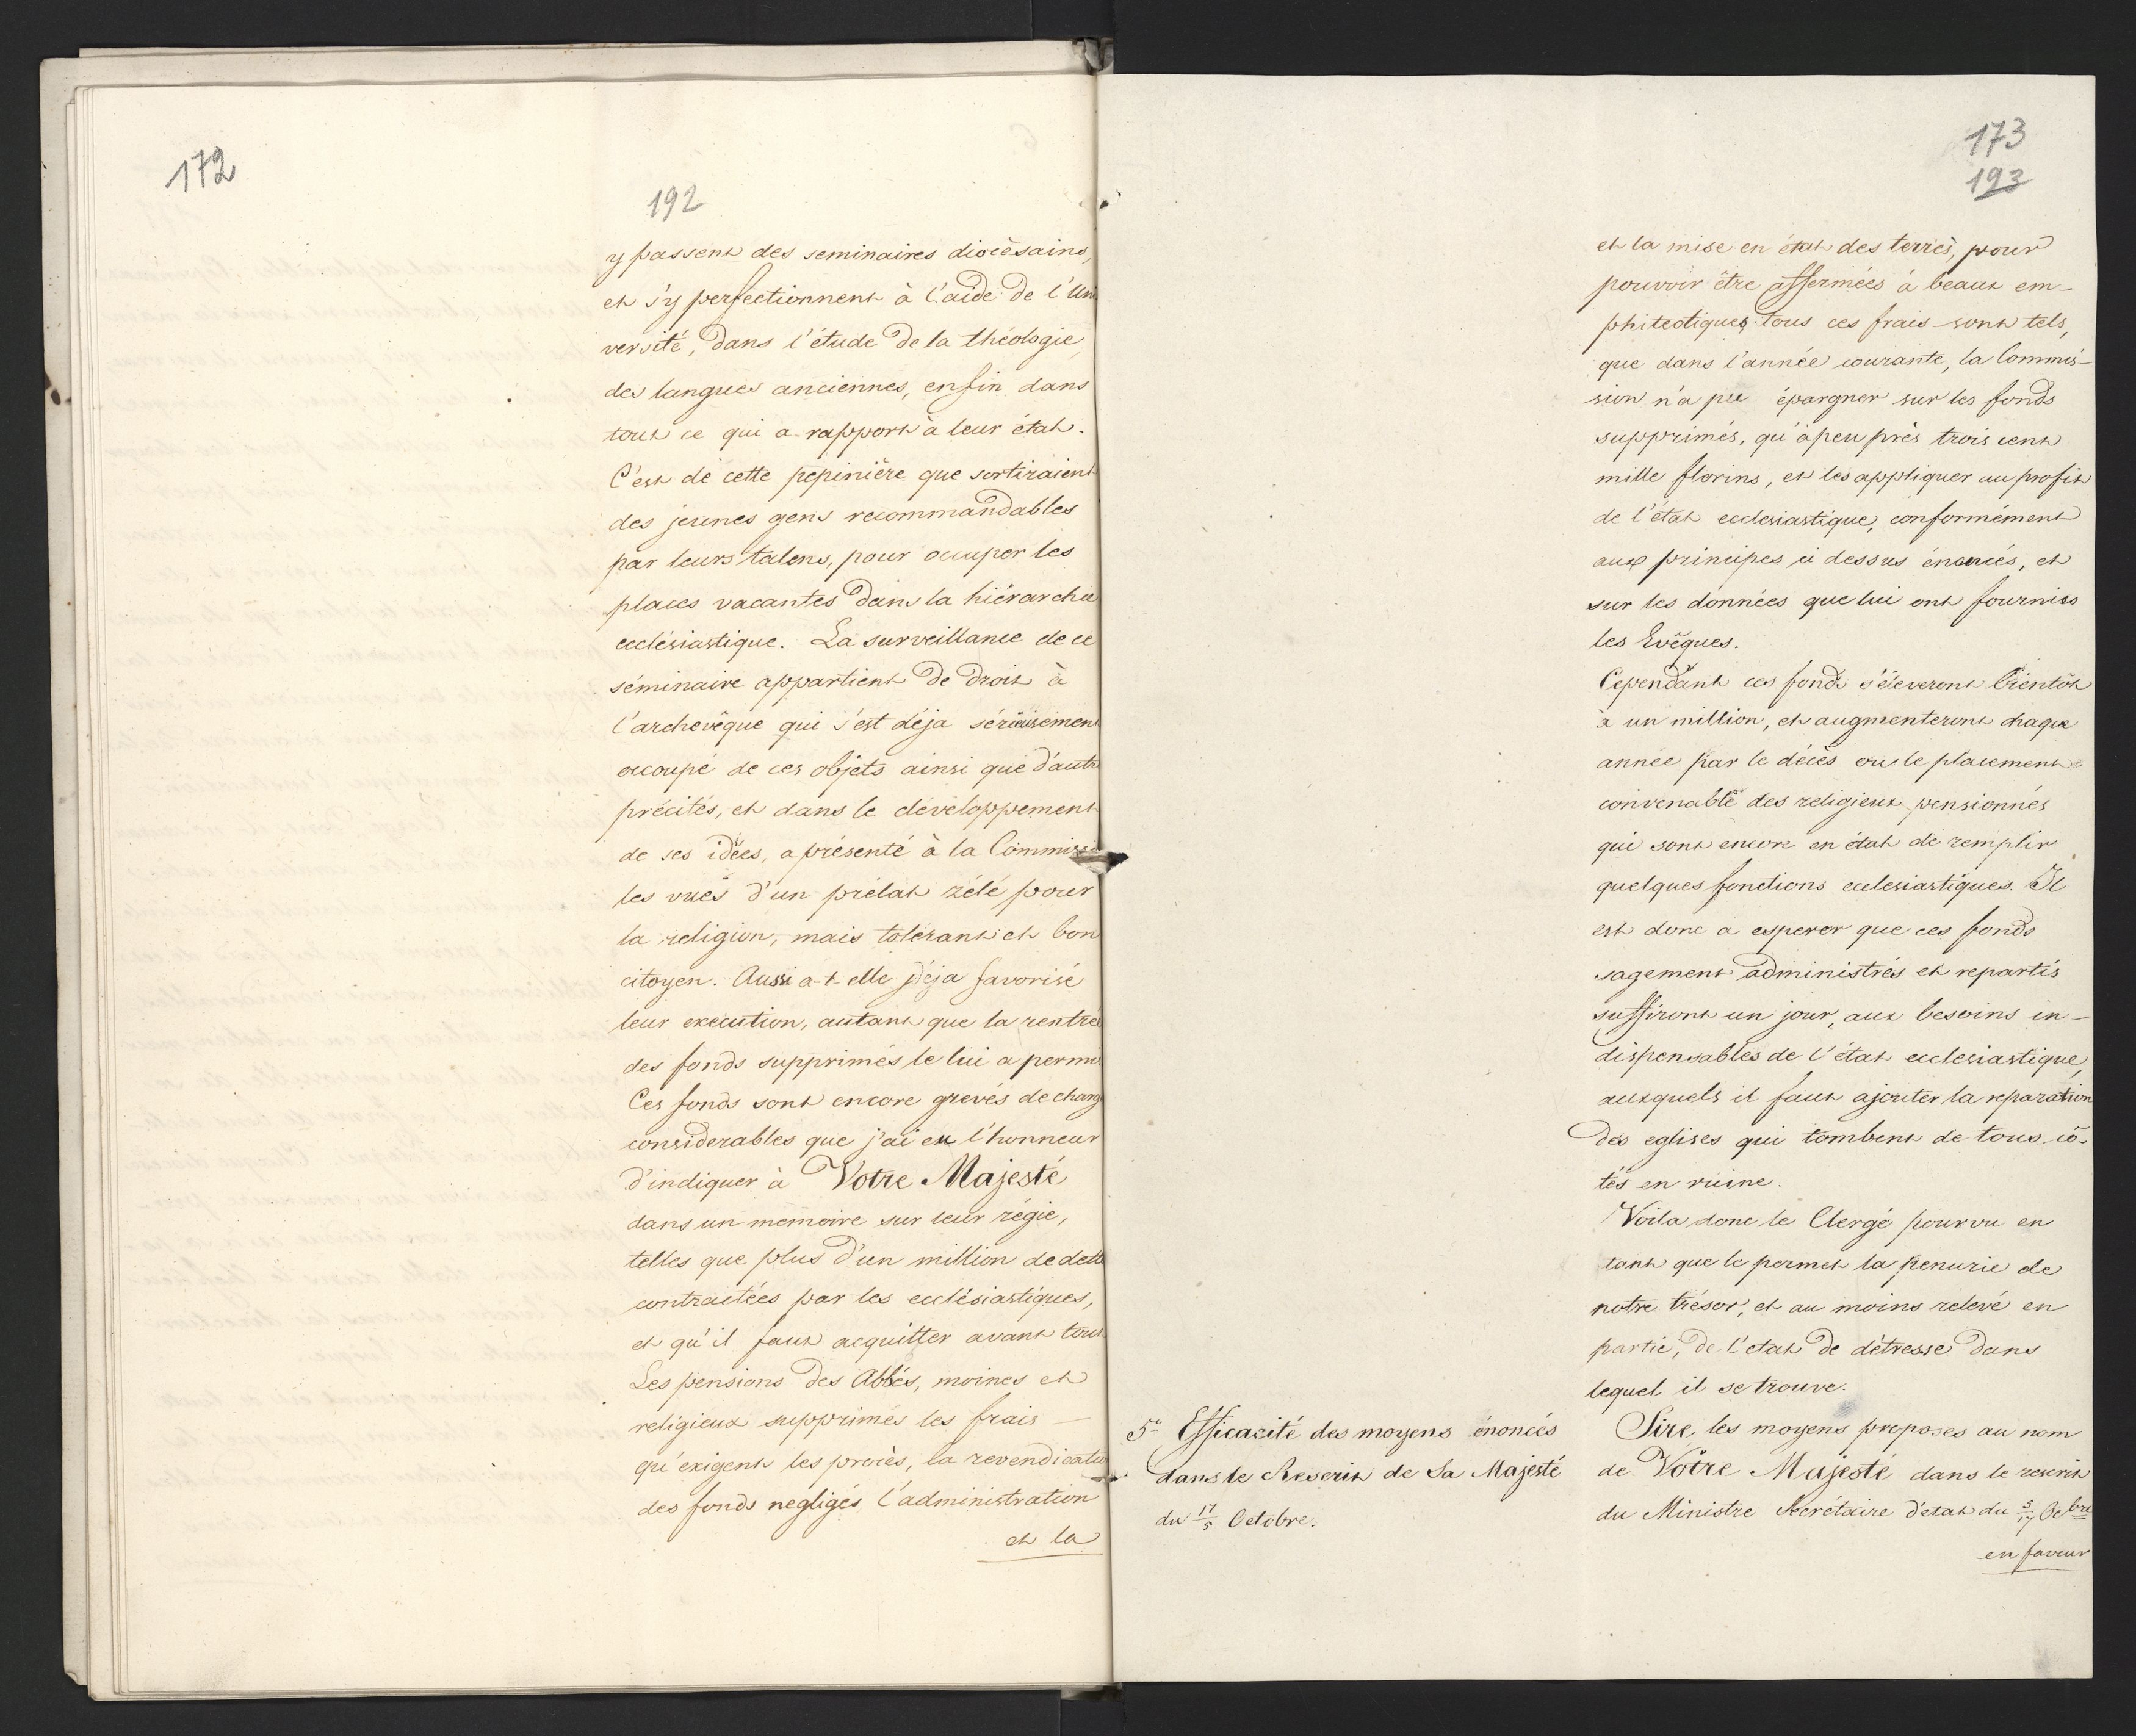 172
192
y passent des seminaires diocèsains,
et s'y perfectionnent à l'aide de l'Uni
versité, dans l'étude de la théologie,
des langues anciennes, enfin dans
tout ce qui a rapport à leur état.
C'est de cette pepinière que sortiraient
des jeunes gens recommandables
par leurs talens, pour occuper les
places vacantes dans la hiérarchie
ecclésiastique. La surveillance de ce
séminaire appartient de droit à
l'archevêque qui s'est déja sérieusement
occupé de ces objets ainsi que d'autre
précités, et dans le développement
de ses idées, a présenté à la Commissi
les vues d'un prélat zélé pour
la religion, mais tolérant et bon
citoyen. Aussi a-t-elle déja favorisé
leur execution, autant que la rentrée
des fonds supprimés le lui a permi
Ces fonds sont encore grevés de charg
considerables que j'ai eu l'honneur
d'indiquer à Votre Majesté
dans un memoire sur leur régie,
telles que plus d'un million de dette
contractées par les ecclésiastiques,
et qu'il faut acquitter avant tout.
Les pensions des Abbés, moines et
religieux supprimés les frais —
qu'exigent les procès, la revendicatio
des fonds negligés l'administration
et la
173
193
et la mise en état des terres, pour
pouvoir être affermées à beaux em-
phiteotiques; tous ces frais sont tels,
que dans l'année courante, la Commis-
sion n'a pu épargner sur les fonds
supprimés, qu'à peu près trois cent
mille florins, et les appliquer au profit
de l'état ecclesiastique, conformément
aux principes ci dessus énoncés, et
sur les données que lui ont fournies
les Evêques.
Cependant ces fonds s'éleveront bientôt
à un million, et augmenteront chaque
année par le décès ou le placement
convenable des religieux pensionnés
qui sont encore en état de remplir
quelques fonctions ecclesiastiques. Il
est donc a esperer que ces fonds
sagement administrés et repartis
suffiront un jour, aux besoins in-
dispensables de l'état ecclesiastique,
auxquels il faut ajouter la reparation
des eglises qui tombent de tous cô-
tés en ruine.
Voila donc le Clergé pourvu en
tant que le permet la penurie de
notre trésor, et au moins relevé en
partie, de l'etat de détresse dans
lequel il se trouve.
5° Efficacité des moyens énoncés
dans le Rescrit de Sa Majesté
du 17/5 Octobre.
Sire, les moyens proposes au nom
de Votre Majesté dans le rescrit
du Ministre Secrétaire d'etat du 5/17 Octbre
en faveur